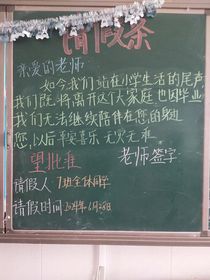 请假条
亲爱的老师:
如今我们站在小学生活的尾声
我们既将离开这个大家庭 也因毕业
我们无法继续陪伴在您的身边
您,以后平安喜乐 无灾无难
望批准 老师签字
请假人:7班全体同学
请假时间:2024年6月26日